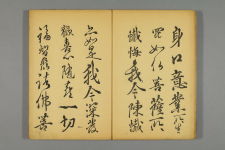 身口意業所生
罪如佛菩薩所
懺悔我今陳懺
亦如是我今深發
歡喜心隨喜一切
福智聚諸佛菩